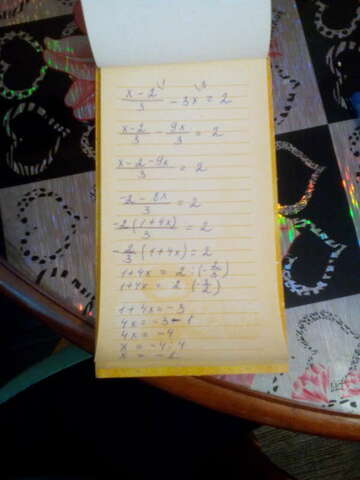 x-2/3 - 3x = 2
x-2/3 - 9x/3 = 2
x-2-9x/3 = 2
-2-8x/3 = 2
-2(1+4x)/3 = 2
-2/3(1+4x) = 2
1+4x = 2 : (-2/3)
1+4x = 2 · (-3/2)
1+4x = -3
4x = -3 - 1
4x = -4
x = -4 : 4
x = -1